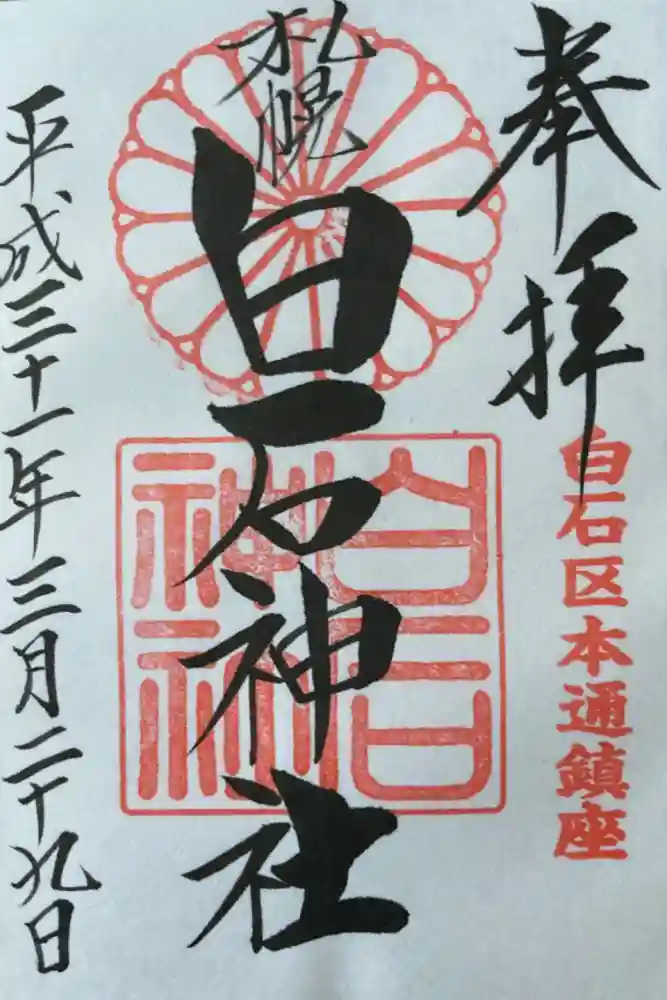 奉拝
白石区本通鎮座
札幌
白石神社
白石
神社
平成三十一年三月二十九日